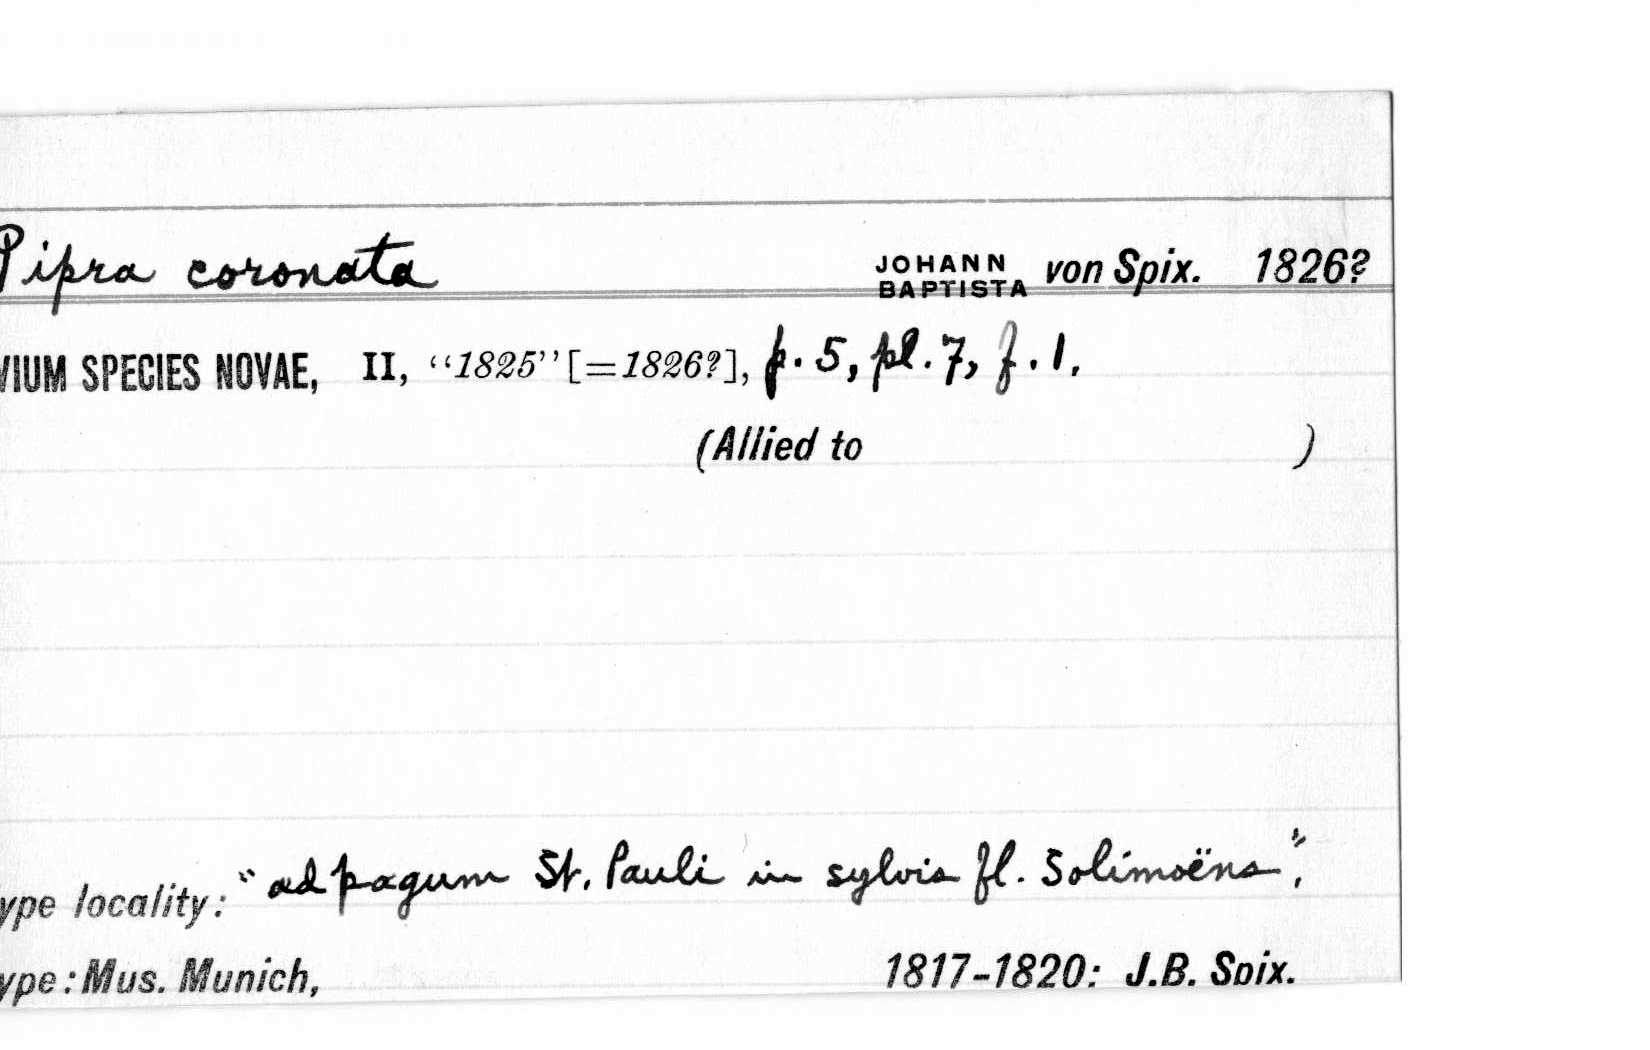 Pipra coronata JOHANN BAPTISTA von Spix. 1826?
VIUM SPECIES NOVAE, II, “1825” [=1826?], p. 5, pl. 7, f. 1.
(Allied to )
ype locality: "ad pagum St. Pauli in sylvis fl. Solimoëns",
ype: Mus. Munich, 1817-1820: J.B. Spix.